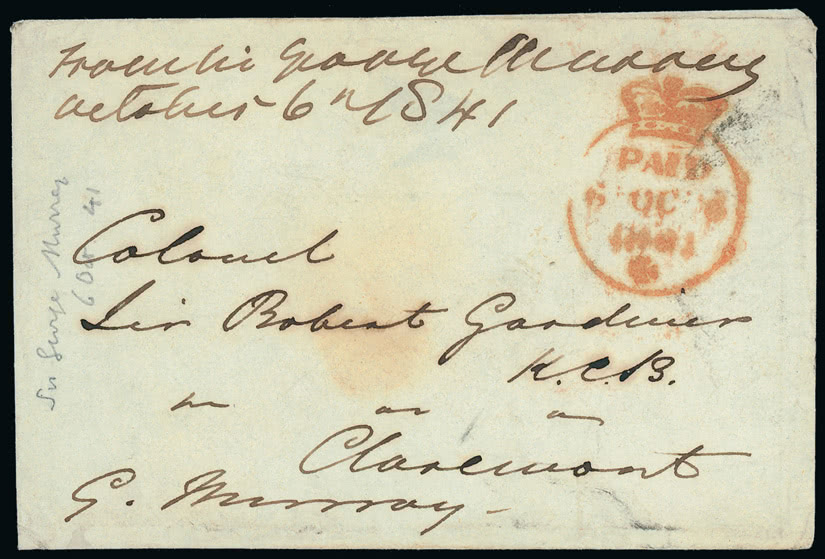 From Sir George Murray
October 6th 1841
PAID
6 OC 6
1841
Sir George Murray
6 Oct 41
Colonel
Sir Robert Gardiner
K.C.B.
Claremont
G. Murray